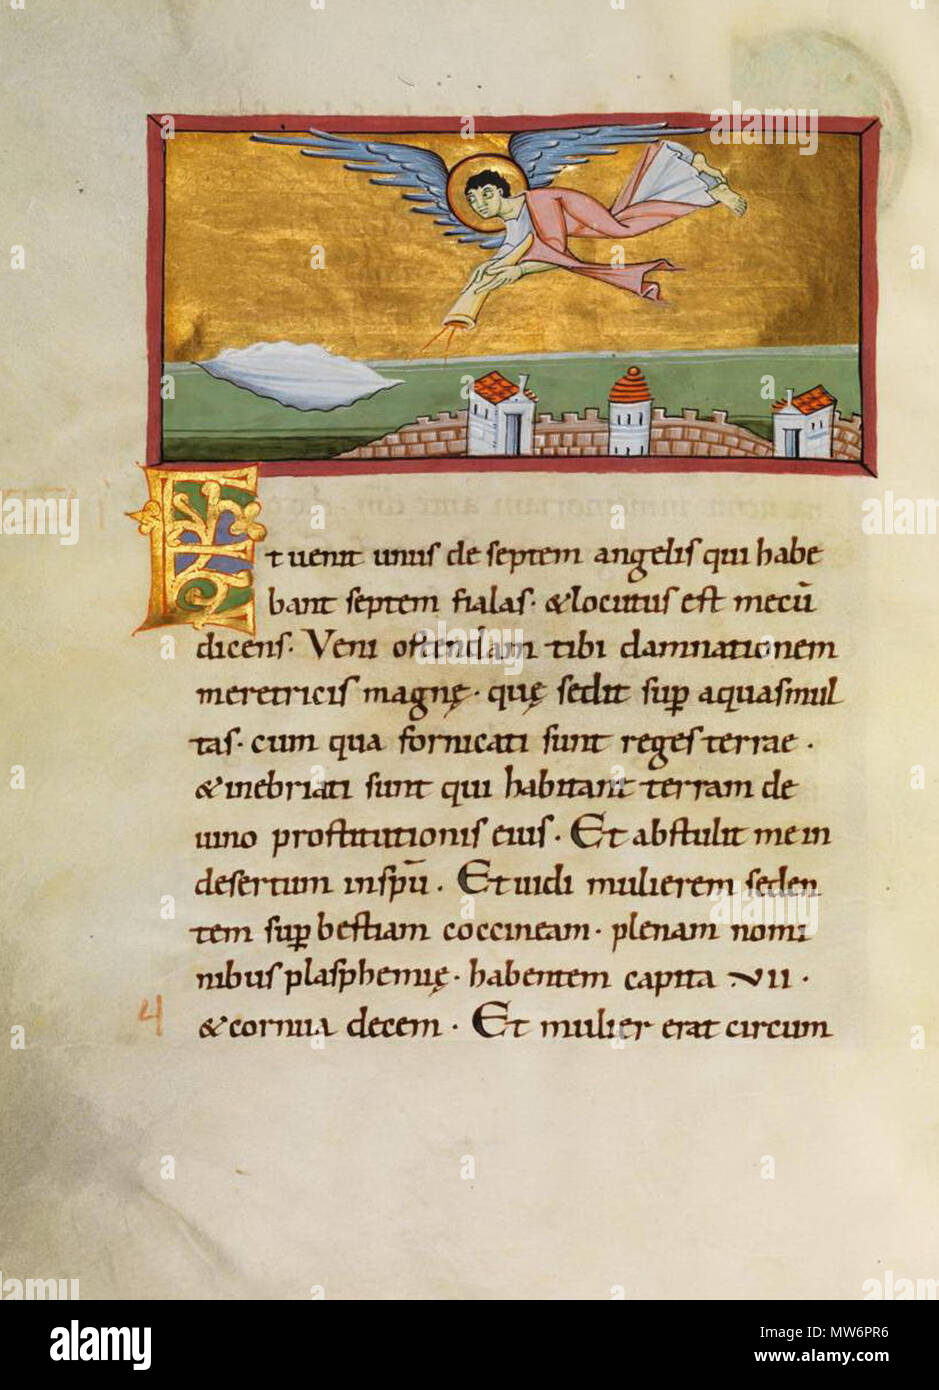 Et uenit unus de septem angelis qui habe
bant septem fialas · & locutus est mecū
dicens · Veni ostendam tibi damnationem
meretricis magnę · quę sedit sup aquas mul
tas · cum qua fornicati sunt reges terrae ·
& inebriati sunt qui habitant terram de
uino prostitutionis eius · Et abstulit me in
desertum in spū · Et uidi mulierem seden
tem sup bestiam coccineam · plenam nomi
nibus plasphemię · habentem capita VII ·
& cornua decem · Et mulier erat circum
4
alamy
Image ID: MW6PR6
www.alamy.com